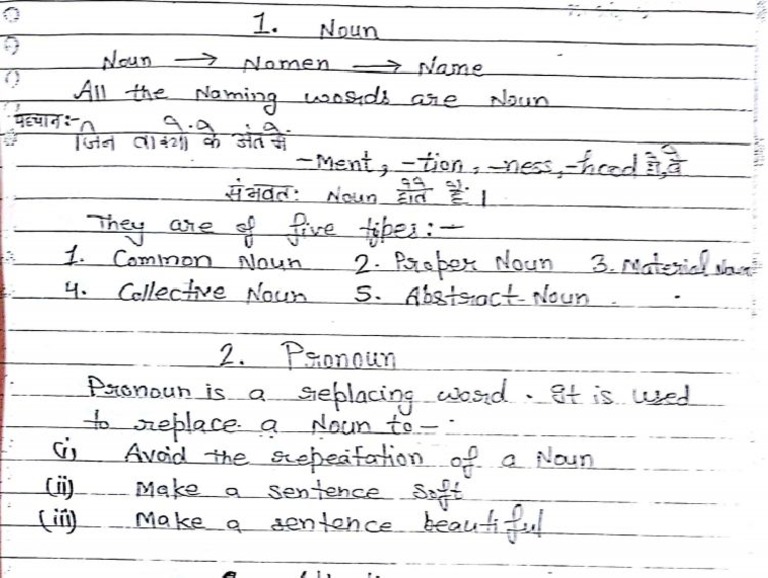 1. Noun
Noun → Nomen → Name
All the Naming words are Noun
पहचान:-
जिन वाक्यो के अंत में
-Ment, -tion, -ness, -hood हो, वे
संभवतः Noun होते है ।
They are of five tipes:-
1. Common Noun 2. Proper Noun 3. Material Noun
4. Collective Noun 5. Abstract Noun .
2. Pronoun
Pronoun is a replacing word. It is used
to replace a Noun to-
(i) Avoid the repeatation of a Noun
(ii) Make a sentence Soft
(iii) Make a sentence beautiful